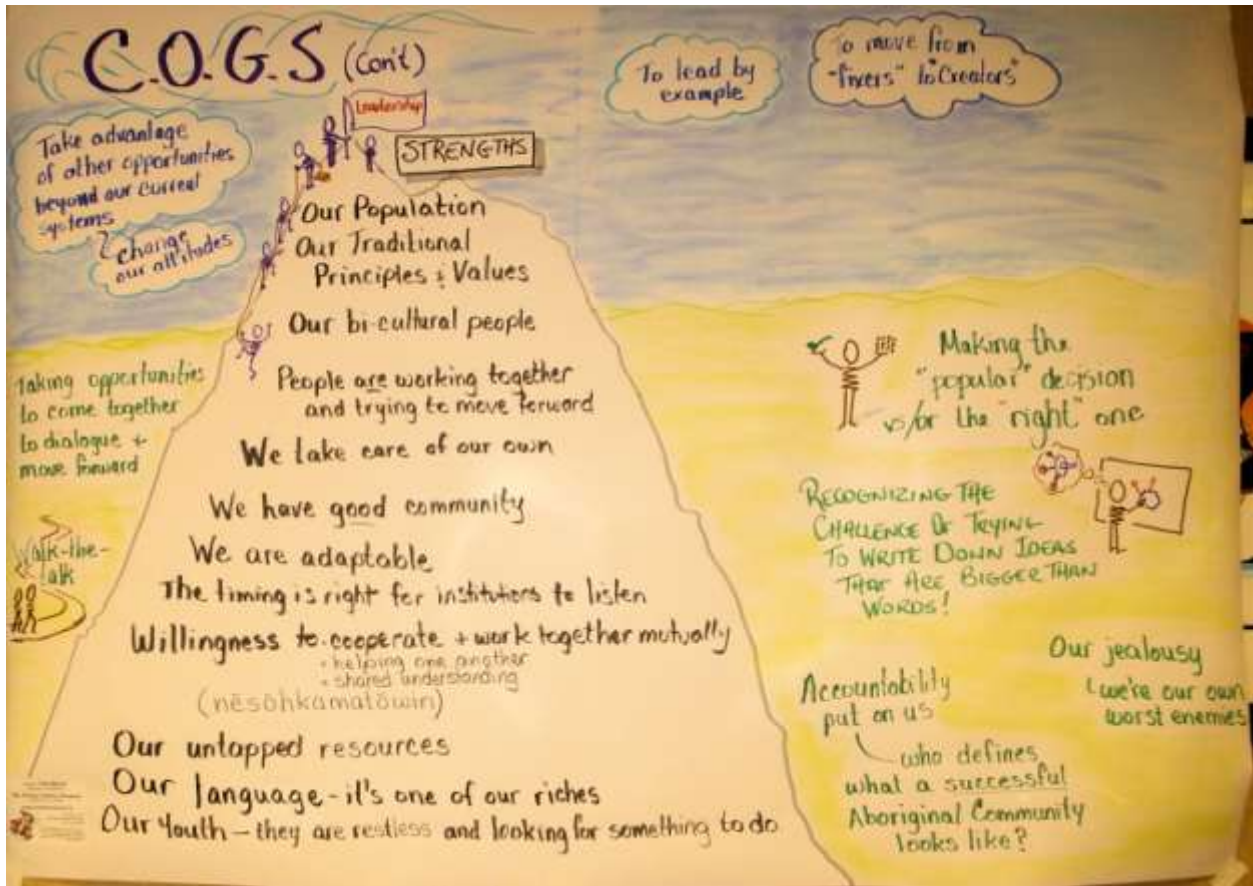 C.O.G.S (Con't)
Leadership
STRENGTHS
Take advantage
of other opportunities
beyond our current
systems
change
our attitudes
To lead by
example
To move from
"fixers" to "Creators"
Our Population
Our Traditional
Principles + Values
Our bi-cultural people
People are working together
and trying to move forward
We take care of our own
We have good community
We are adaptable
The timing is right for institutions to listen
Willingness to cooperate + work together mutually
• helping one another
• shared understanding
(nēsōhkamatōwin)
Our untapped resources
Our language - it's one of our riches
Our Youth – they are restless and looking for something to do
Taking opportunities
to come together
to dialogue +
move forward
Walk-the-
talk
Making the
"popular" decision
vs/or the "right" one
RECOGNIZING THE
CHALLENGE OF TRYING
TO WRITE DOWN IDEAS
THAT ARE BIGGER THAN
WORDS!
Our jealousy
we're our own
worst enemies
Accountability
put on us
who defines
what a successful
Aboriginal Community
looks like?